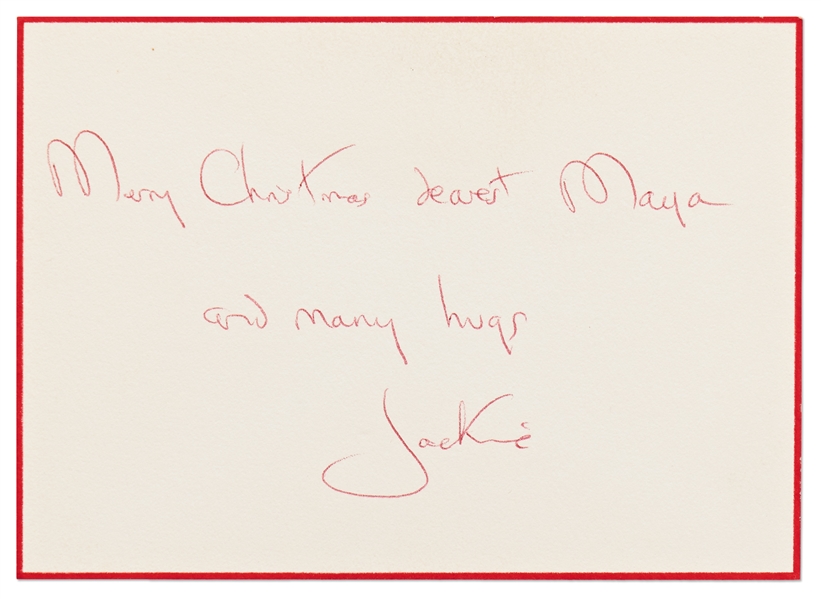 Merry Christmas dearest Maya
and many hugs
Jackie